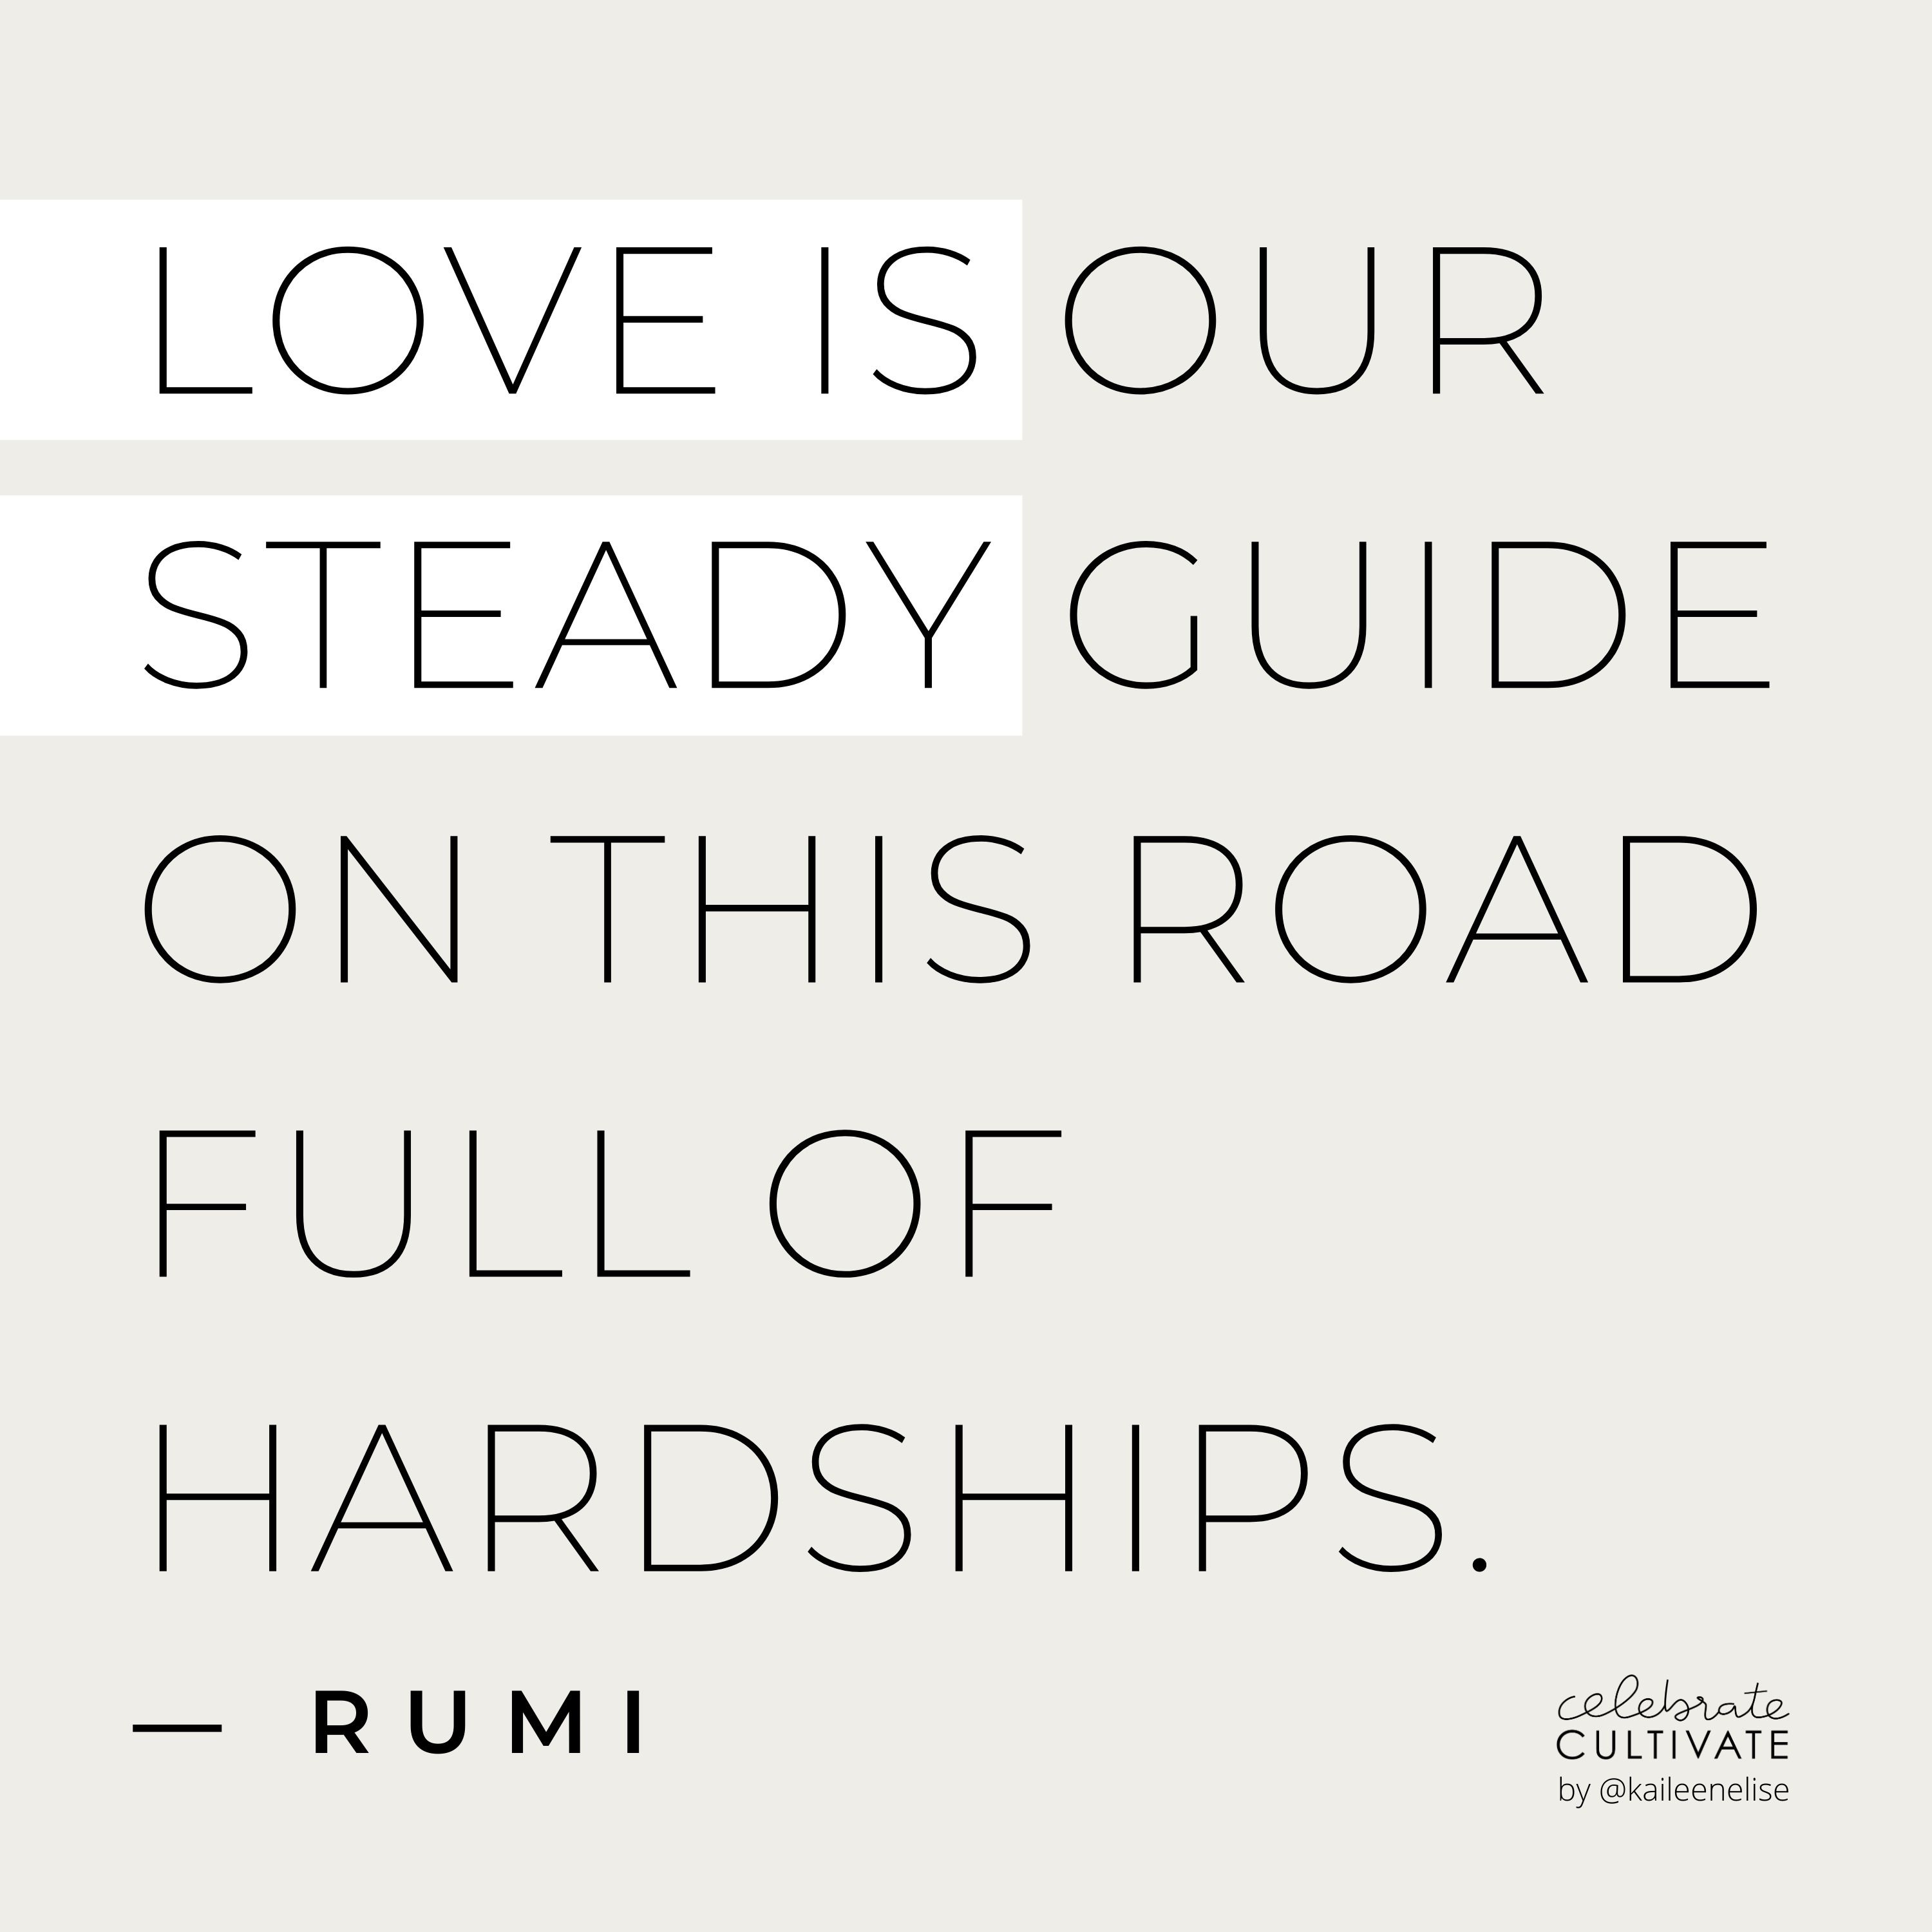 LOVE IS OUR
STEADY GUIDE
ON THIS ROAD
FULL OF
HARDSHIPS.
— RUMI
celebrate
CULTIVATE
by @kaileenelise